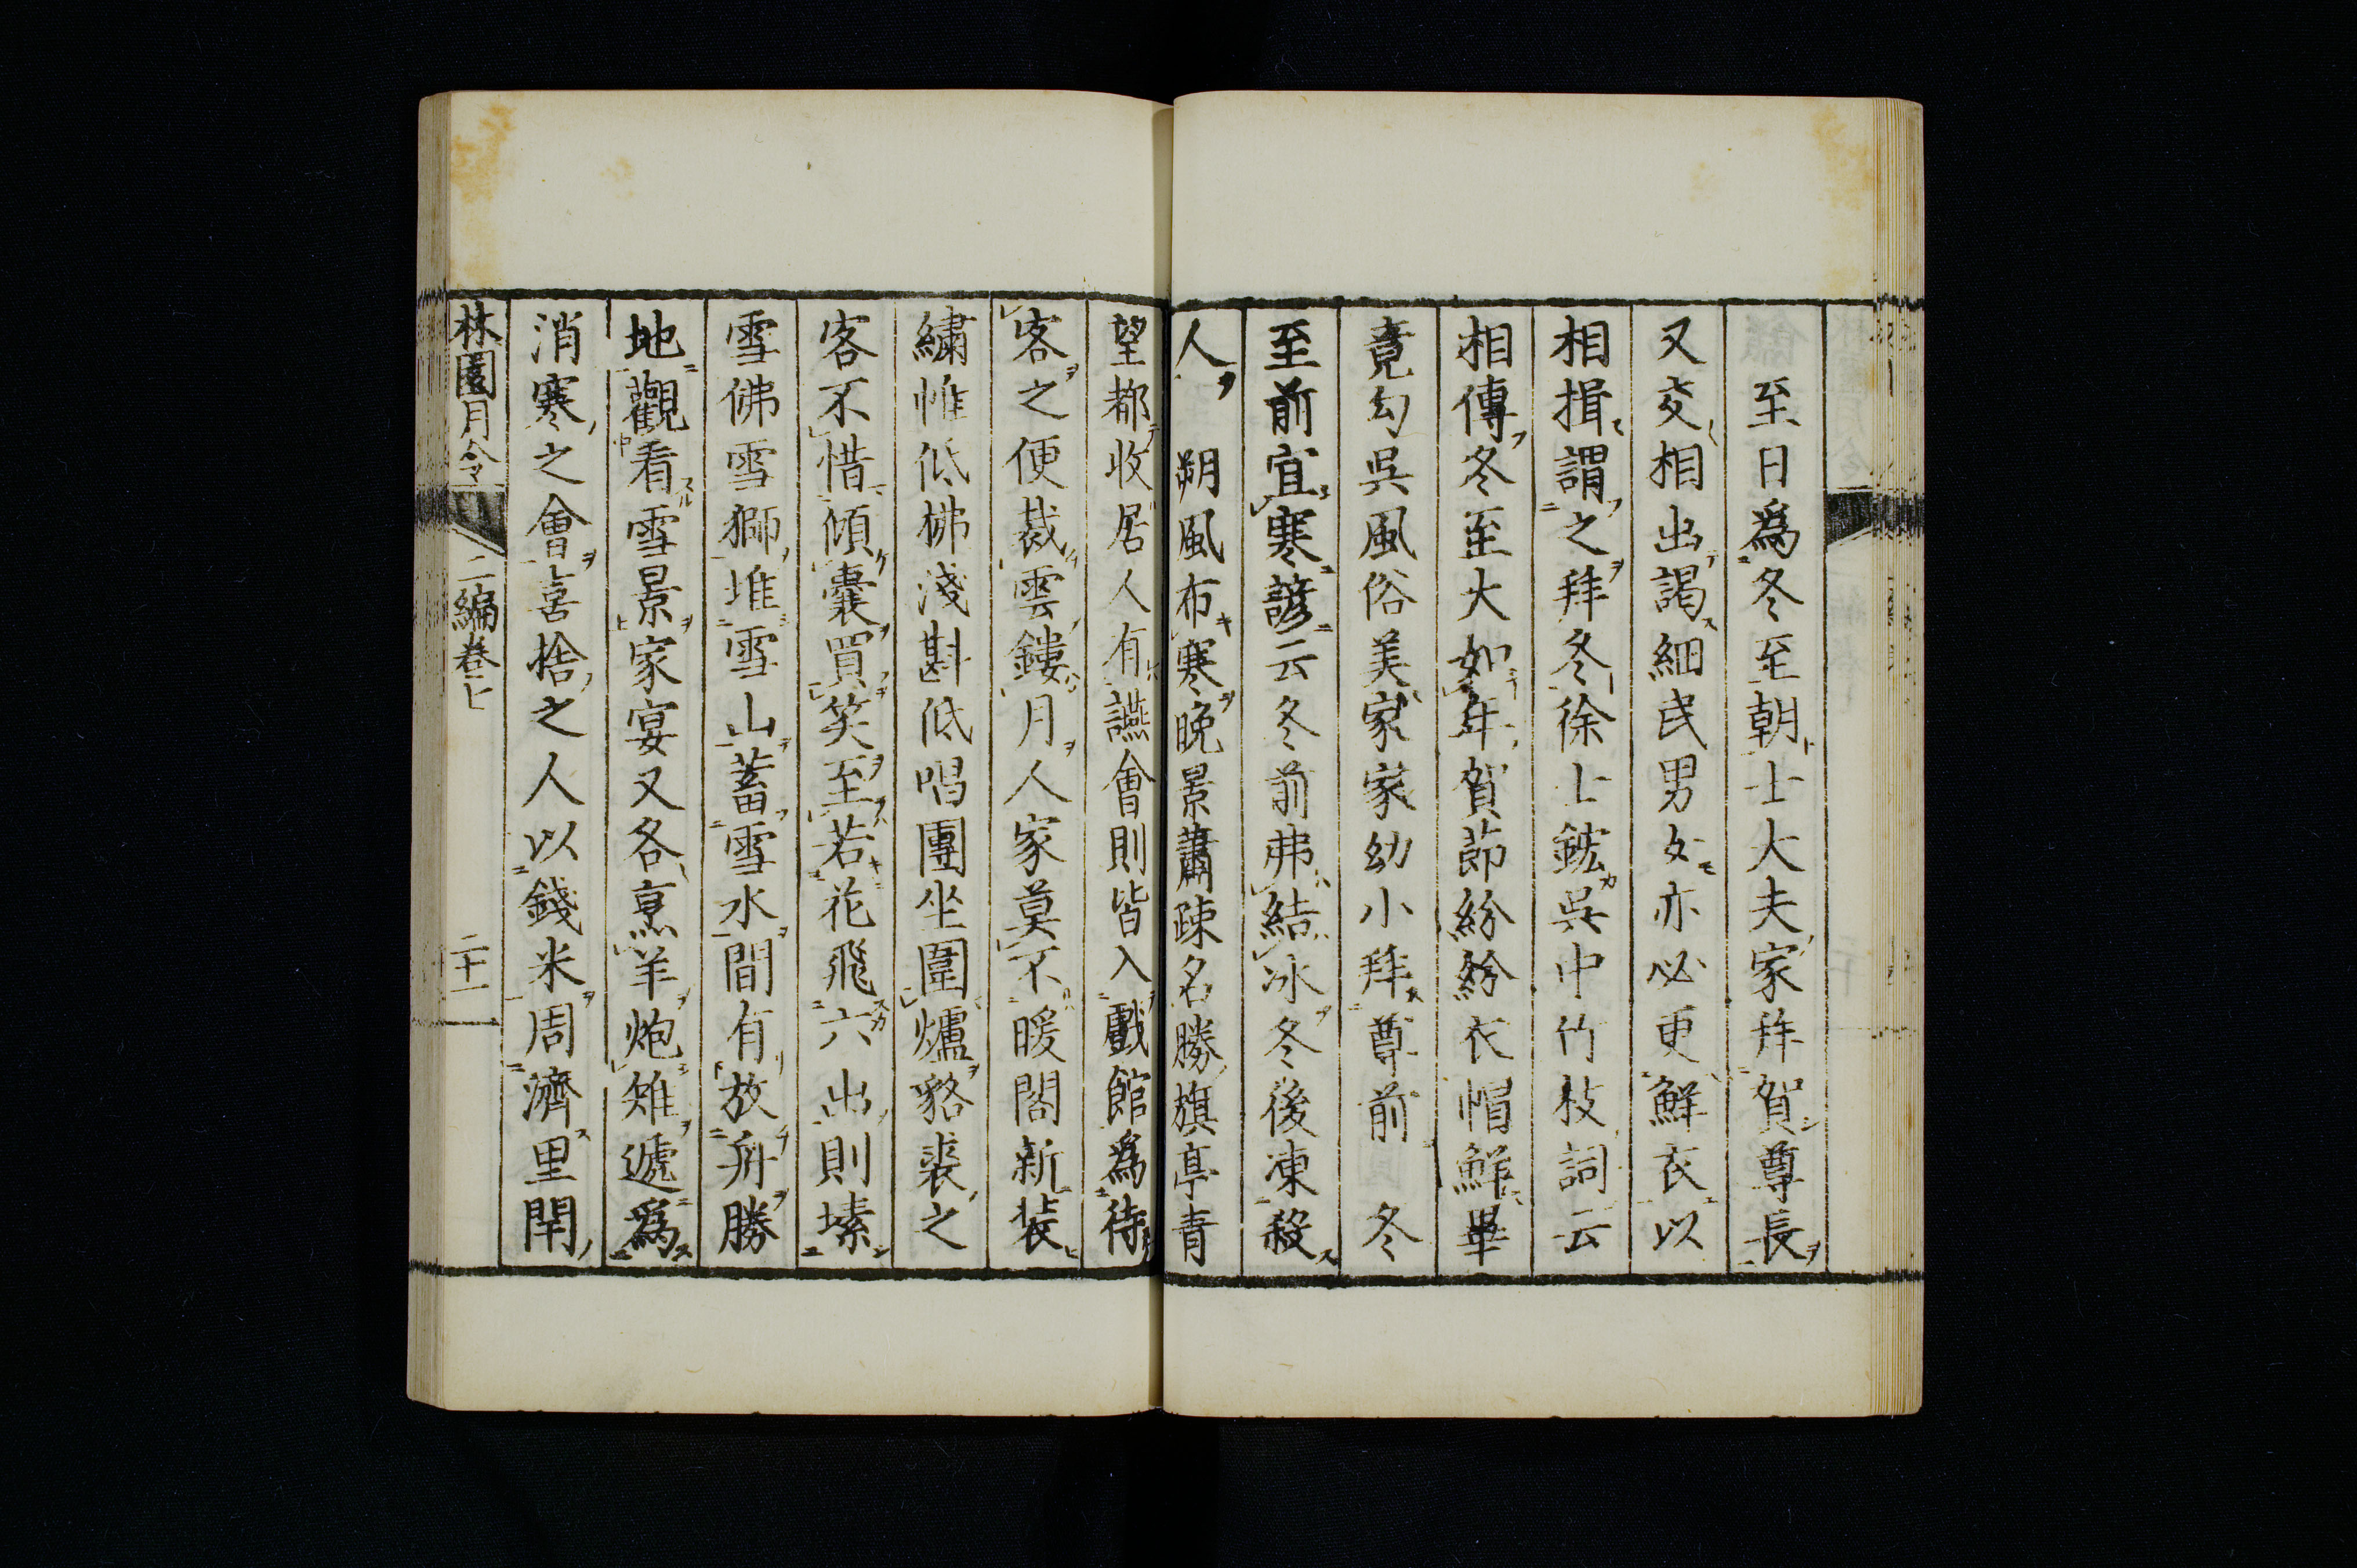 至日為冬至朝士大夫家拜賀尊長
又交相出謁細民男女亦必更鮮衣以
相揖謂之拜冬徐士鋐吳中竹枝詞云
相傳冬至大如年賀節紛紛衣帽鮮畢
竟勾吳風俗美家家幼小拜尊前　冬
至前宜寒諺云冬前弗結冰冬後凍殺
人　朔風布寒晩景蕭疎名勝旗亭青
望都收居人有讌會則皆入戲館為待
客之便裁雲鏤月人家莫不暖閣新裝
繡帷低拂淺斟低唱團坐圍爐貉裘之
客不惜傾囊買笑至若花飛六出則塐
雪佛雪獅堆雪山蓄雪水間有放舟勝
地觀看雪景家宴又各烹羊炮雉遞為
消寒之會喜捨之人以錢米周濟里閈
林園月令　二編卷七　二十一